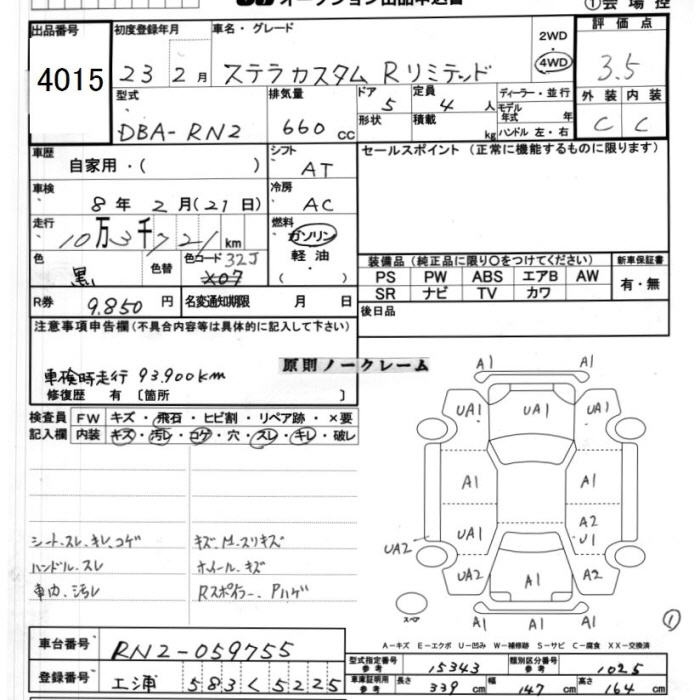 オークション出品申込書 ①会場控
出品番号 初度登録年月 車名・グレード 2WD 評価点
4015 23 2月 ステラカスタム Rリミテッド 4WD 3.5
型式 排気量 ドア 5 定員 4人 ディーラー・並行 外装 内装
DBA-RN2 660cc 形状 積載 kg モデル年式 年式 ハンドル 左・右 C C
車歴 自家用・( ) シフト AT セールスポイント (正常に機能するものに限ります)
車検 8年 2月(21日) 冷房 AC
走行 10万3千721km 燃料 ガソリン
軽油
・
色 黒 色替 色コード 32J
X07
装備品 (純正品に限り〇をつけてください) 新車保証書
PS PW ABS エアB AW 有・無
SR ナビ TV カワ
R券 9,850円 名変通知期限 月 日 後日品
注意事項申告欄(不具合内容等は具体的に記入して下さい)
原則ノークレーム
車検時走行 93,900km
修復歴 有 〔箇所 〕
検査員 FW キズ・飛石・ヒビ割・リペア跡・×要
記入欄 内装 キズ・汚レ・コゲ・穴・スレ・キレ・破レ
シート.スレ.キレ.コゲ キズ.M.スリキズ
ハンドル.スレ ホイール.キズ
車内.汚レ Rスポイラー.Pハゲ
A1 A1
UA1 UA1 UA1
A1 A1
UA2 UA1 A2
U1
UA2 A1 A2
A1 A1 A1
スペア ①
A-キズ E-エクボ U-凹み W-補修跡 S-サビ C-腐食 XX-交換済
車台番号 RN2-059755
型式指定番号 参考 15343 類別区分番号 参考 1025
登録番号 583く5225
車庫証明用 参考 長さ 339cm 幅 147cm 高さ 164cm